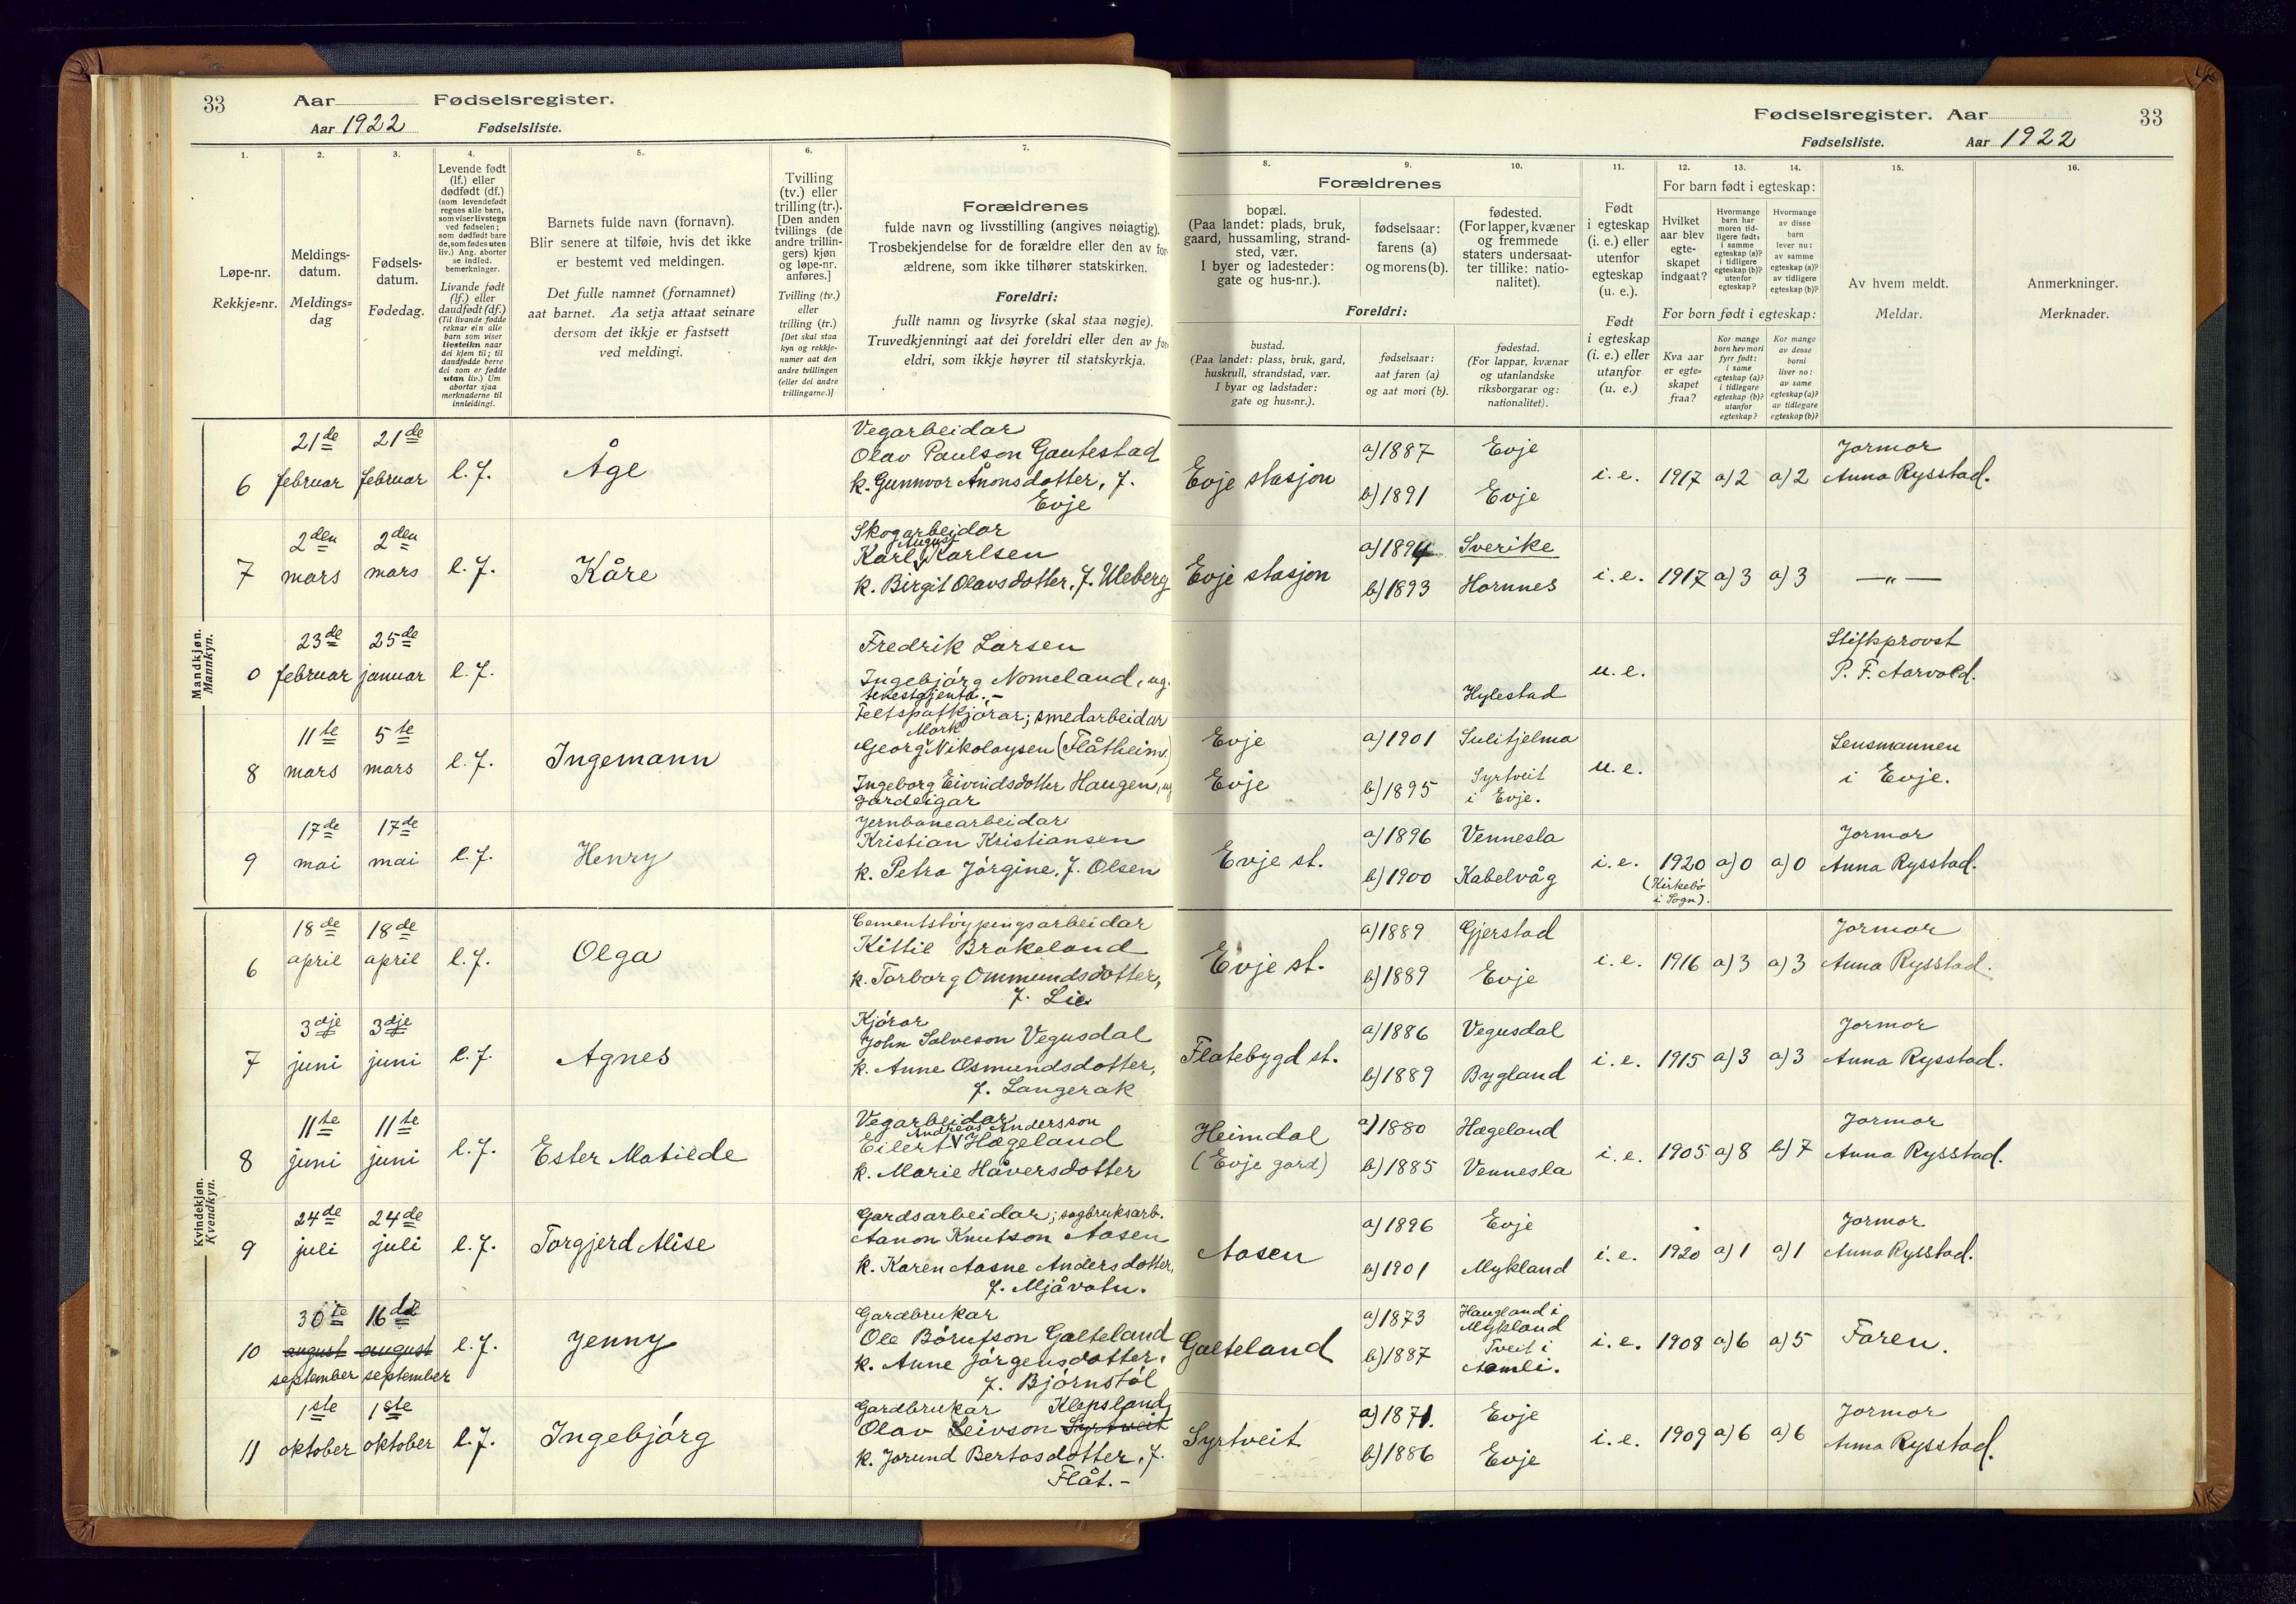 33 Aar Fødselsregister.
Aar 1922 Fødselsliste.
Fødselsregister. Aar 33
Fødselsliste. Aar 1922
1. 2. 3. 4. 5. 6. 7.
Løpe-nr.
Rekkje=nr.
Meldings-
datum.
Meldings=
dag
Fødsels-
datum.
Fødedag.
Levende født
(lf.) eller
dødfødt (df.)
(som levendefødt
regnes alle barn,
som viser livstegn
ved fødselen;
som dødfødt bare
de, som fødes uten
liv.) Ang. aborter
se indled.
bemerkninger.
Livande født
(lf.) eller
daudfødt (df.)
(Til livande fødde
reknar ein alle
barn som viser
livsteikn naar
dei kjem til; til
daudfødde berre
dei som er fødde
utan liv.) Um
abortar sjaa
merknaderne til
innleidingi.
Barnets fulde navn (fornavn).
Blir senere at tilføie, hvis det ikke
er bestemt ved meldingen.
Det fulle namnet (fornamnet)
aat barnet. Aa setja attaat seinare
dersom det ikkje er fastsett
ved meldingi.
Tvilling
(tv.) eller
trilling (tr.).
[Den anden
tvillings (de
andre trillin-
gers) kjøn
og løpe-nr.
anføres.]
Tvilling (tv.)
eller
trilling (tr.)
[Det skal staa
kyn og rekkje-
numer aat den
andre tvillingen
(eller dei andre
trillingarne.)]
Forældrenes
fulde navn og livsstilling (angives nøiagtig).
Trosbekjendelse for de forældre eller den av for-
ældrene, som ikke tilhører statskirken.
Foreldri:
fullt namn og livsyrke (skal staa nøgje).
Truvedkjenningi aat dei foreldri eller den av for-
eldri, som ikkje høyrer til statskyrkja.
8. 9. 10. 11. 12. 13. 14. 15. 16.
Forældrenes
bopæl.
(Paa landet: plads, bruk,
gaard, hussamling, strand-
sted, vær.
I byer og ladesteder:
gate og hus-nr.).
fødselsaar:
farens (a)
og morens (b).
fødested.
(For lapper, kvæner
og fremmede
staters undersaat-
ter tillike: natio-
nalitet).
Foreldri:
bustad.
(Paa landet: plass, bruk, gard,
huskrull, strandstad, vær.
I byar og ladstader:
gate og hus=nr.).
fødselsaar:
aat faren (a)
og aat mori (b).
fødestad.
(For lappar, kvænar
og utanlandske
riksborgarar og:
nationalitet).
Født
i egteskap
(i. e.) eller
utenfor
egteskap
(u. e.).
Født
i egteskap
(i. e.) eller
utanfor
(u. e.)
For barn født i egteskap:
Hvilket
aar blev
egte-
skapet
indgaat?
Hvormange
barn har
moren tid-
ligere født:
i samme
egteskap (a)?
i tidligere
egteskap (b)?
utenfor
egteskap?
Hvormange
av disse
barn
lever nu:
av samme
egteskap (a)?
av tidligere
egteskap (b)?
For born født i egteskap:
Kva aar
er egte=
skapet
fraa?
Kor mange
born hev mori
fyrr født:
i same
egteskap (a)?
i tidlegare
egteskap (b)?
utanfor
egteskap?
Kor mange
av desse
borni
liver no:
av same
egteskap (a)?
av tidlegare
egteskap (b)?
Av hvem meldt.
Meldar.
Anmerkninger.
Merknader.
Mandkjøn.
Mannkyn.
6 21de februar 21de februar l. f. Åge
Vegarbeidar
Olav Paulson Gautestad
k. Gunnvor Ånonsdotter, f.
Evje
Evje stasjon a) 1887 Evje b) 1891 Evje i. e. 1917 a) 2 a) 2 Jormor Anna Rysstad.
7 2den mars 2den mars l. f. Kåre
Skogarbeidar
Karl August Karlsen
k. Birgit Olavsdotter, f. Uleberg
Evje stasjon a) 1894 Sverike b) 1893 Hornnes i. e. 1917 a) 3 a) 3 —"—
0 23de februar 25de januar l. f.
Fredrik Larsen
Ingebjørg Nomeland, ug.
tenestgjenta. -
Hylestad u. e. Stiftsprovst P. F. Aarvold.
8 11te mars 5te mars l. f. Ingemann
Feltspatkjørar; smedarbeidar
Georg Mork Nikolaysen (Flåtheim)
Ingeborg Eivindsdotter Haugen, ug
gardeigar
Evje Evje a) 1901 Sulitjelma b) 1895 Syrtveit i Evje. u. e. Lensmannen i Evje.
9 17de mai 17de mai l. f. Henry
Jernbanearbeidar
Kristian Kristiansen
k. Petra Jørgine, f. Olsen
Evje st. a) 1896 Vennesla b) 1900 Kabelvåg i. e. 1920 (Kirkebø i Sogn). a) 0 a) 0 Jormor Anna Rysstad.
Kvindekjøn.
Kvendkyn.
6 18de april 18de april l. f. Olga
Cementstøypingsarbeidar
Kittil Brokeland
k. Torborg Ommundsdotter,
f. Lie
Evje st. a) 1889 Gjerstad b) 1889 Evje i. e. 1916 a) 3 a) 3 Jormor Anna Rysstad.
7 3dje juni 3dje juni l. f. Agnes
Kjørar
John Salveson Vegusdal
k. Anne Osmundsdotter,
f. Langerak
Flatebygd st. a) 1886 Vegusdal b) 1889 Bygland i. e. 1915 a) 3 a) 3 Jormor Anna Rysstad.
8 11te juni 11te juni l. f. Ester Matilde
Vegarbeidar
Eilert Andreas Andersson Hægeland
k. Marie Håversdotter
Heimdal (Evje gard) a) 1880 Hægeland b) 1885 Vennesla i. e. 1905 a) 8 b) 7 Jormor Anna Rysstad.
9 24de juli 24de juli l. f. Torgjerd Alise
Gardsarbeidar; sagbruksarb.
Aanon Knutson Aasen
k. Karen Aasne Andersdotter,
f. Mjåvatn.
Aasen a) 1896 Evje b) 1901 Mykland i. e. 1920 a) 1 a) 1 Jormor Anna Rysstad.
10 30te august september 16de august september l. f. Jenny
Gardbrukar
Ole Børufson Galteland
k. Anne Jørgensdotter,
f. Bjørnstøl
Galteland a) 1873 Haugland i Mykland b) 1887 Tveit i Aamli. i. e. 1908 a) 6 a) 5 Faren.
11 1ste oktober 1ste oktober l. f. Ingebjørg
Gardbrukar Klepsland,
Olav Leivson Syrtveit
k. Jorund Bertosdotter, f.
Flåt. -
Syrtveit a) 1871. Evje b) 1886 Evje i. e. 1909 a) 6 a) 6 Jormor Anna Rysstad.